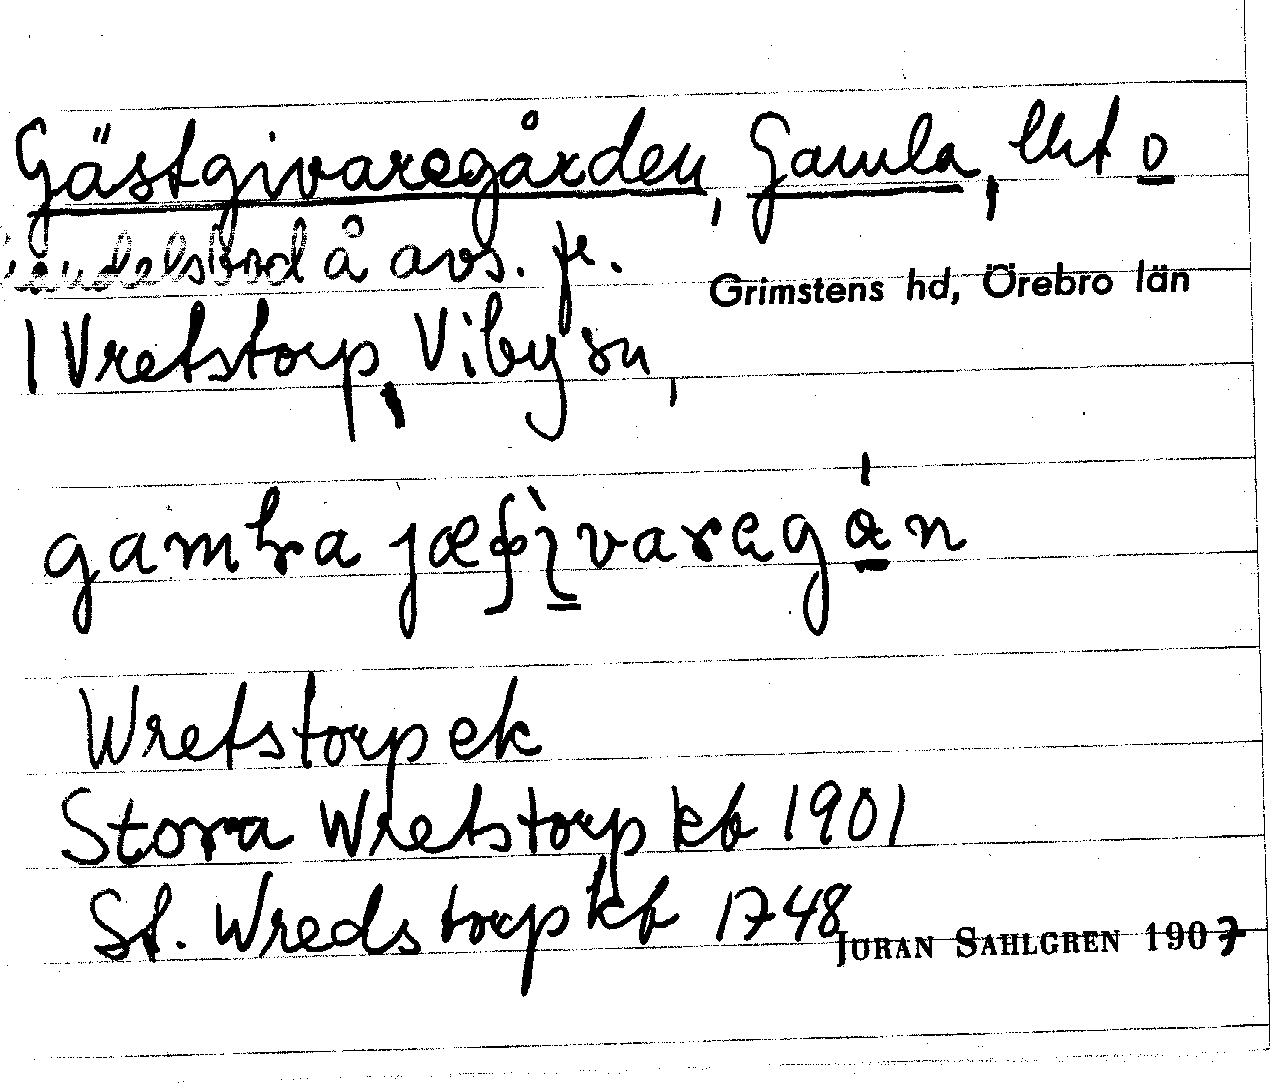 Gästgivaregården, Gamla, lht o
handelsbod å avs. fr.
Grimstens hd, Örebro län
1 Vretstorp, Viby sn,
gamka jæʃìvaregán
Wretstorp ek
Stora Wretstorp kb 1901
St. Wredstorp kb 1748
JÖRAN SAHLGREN 1907